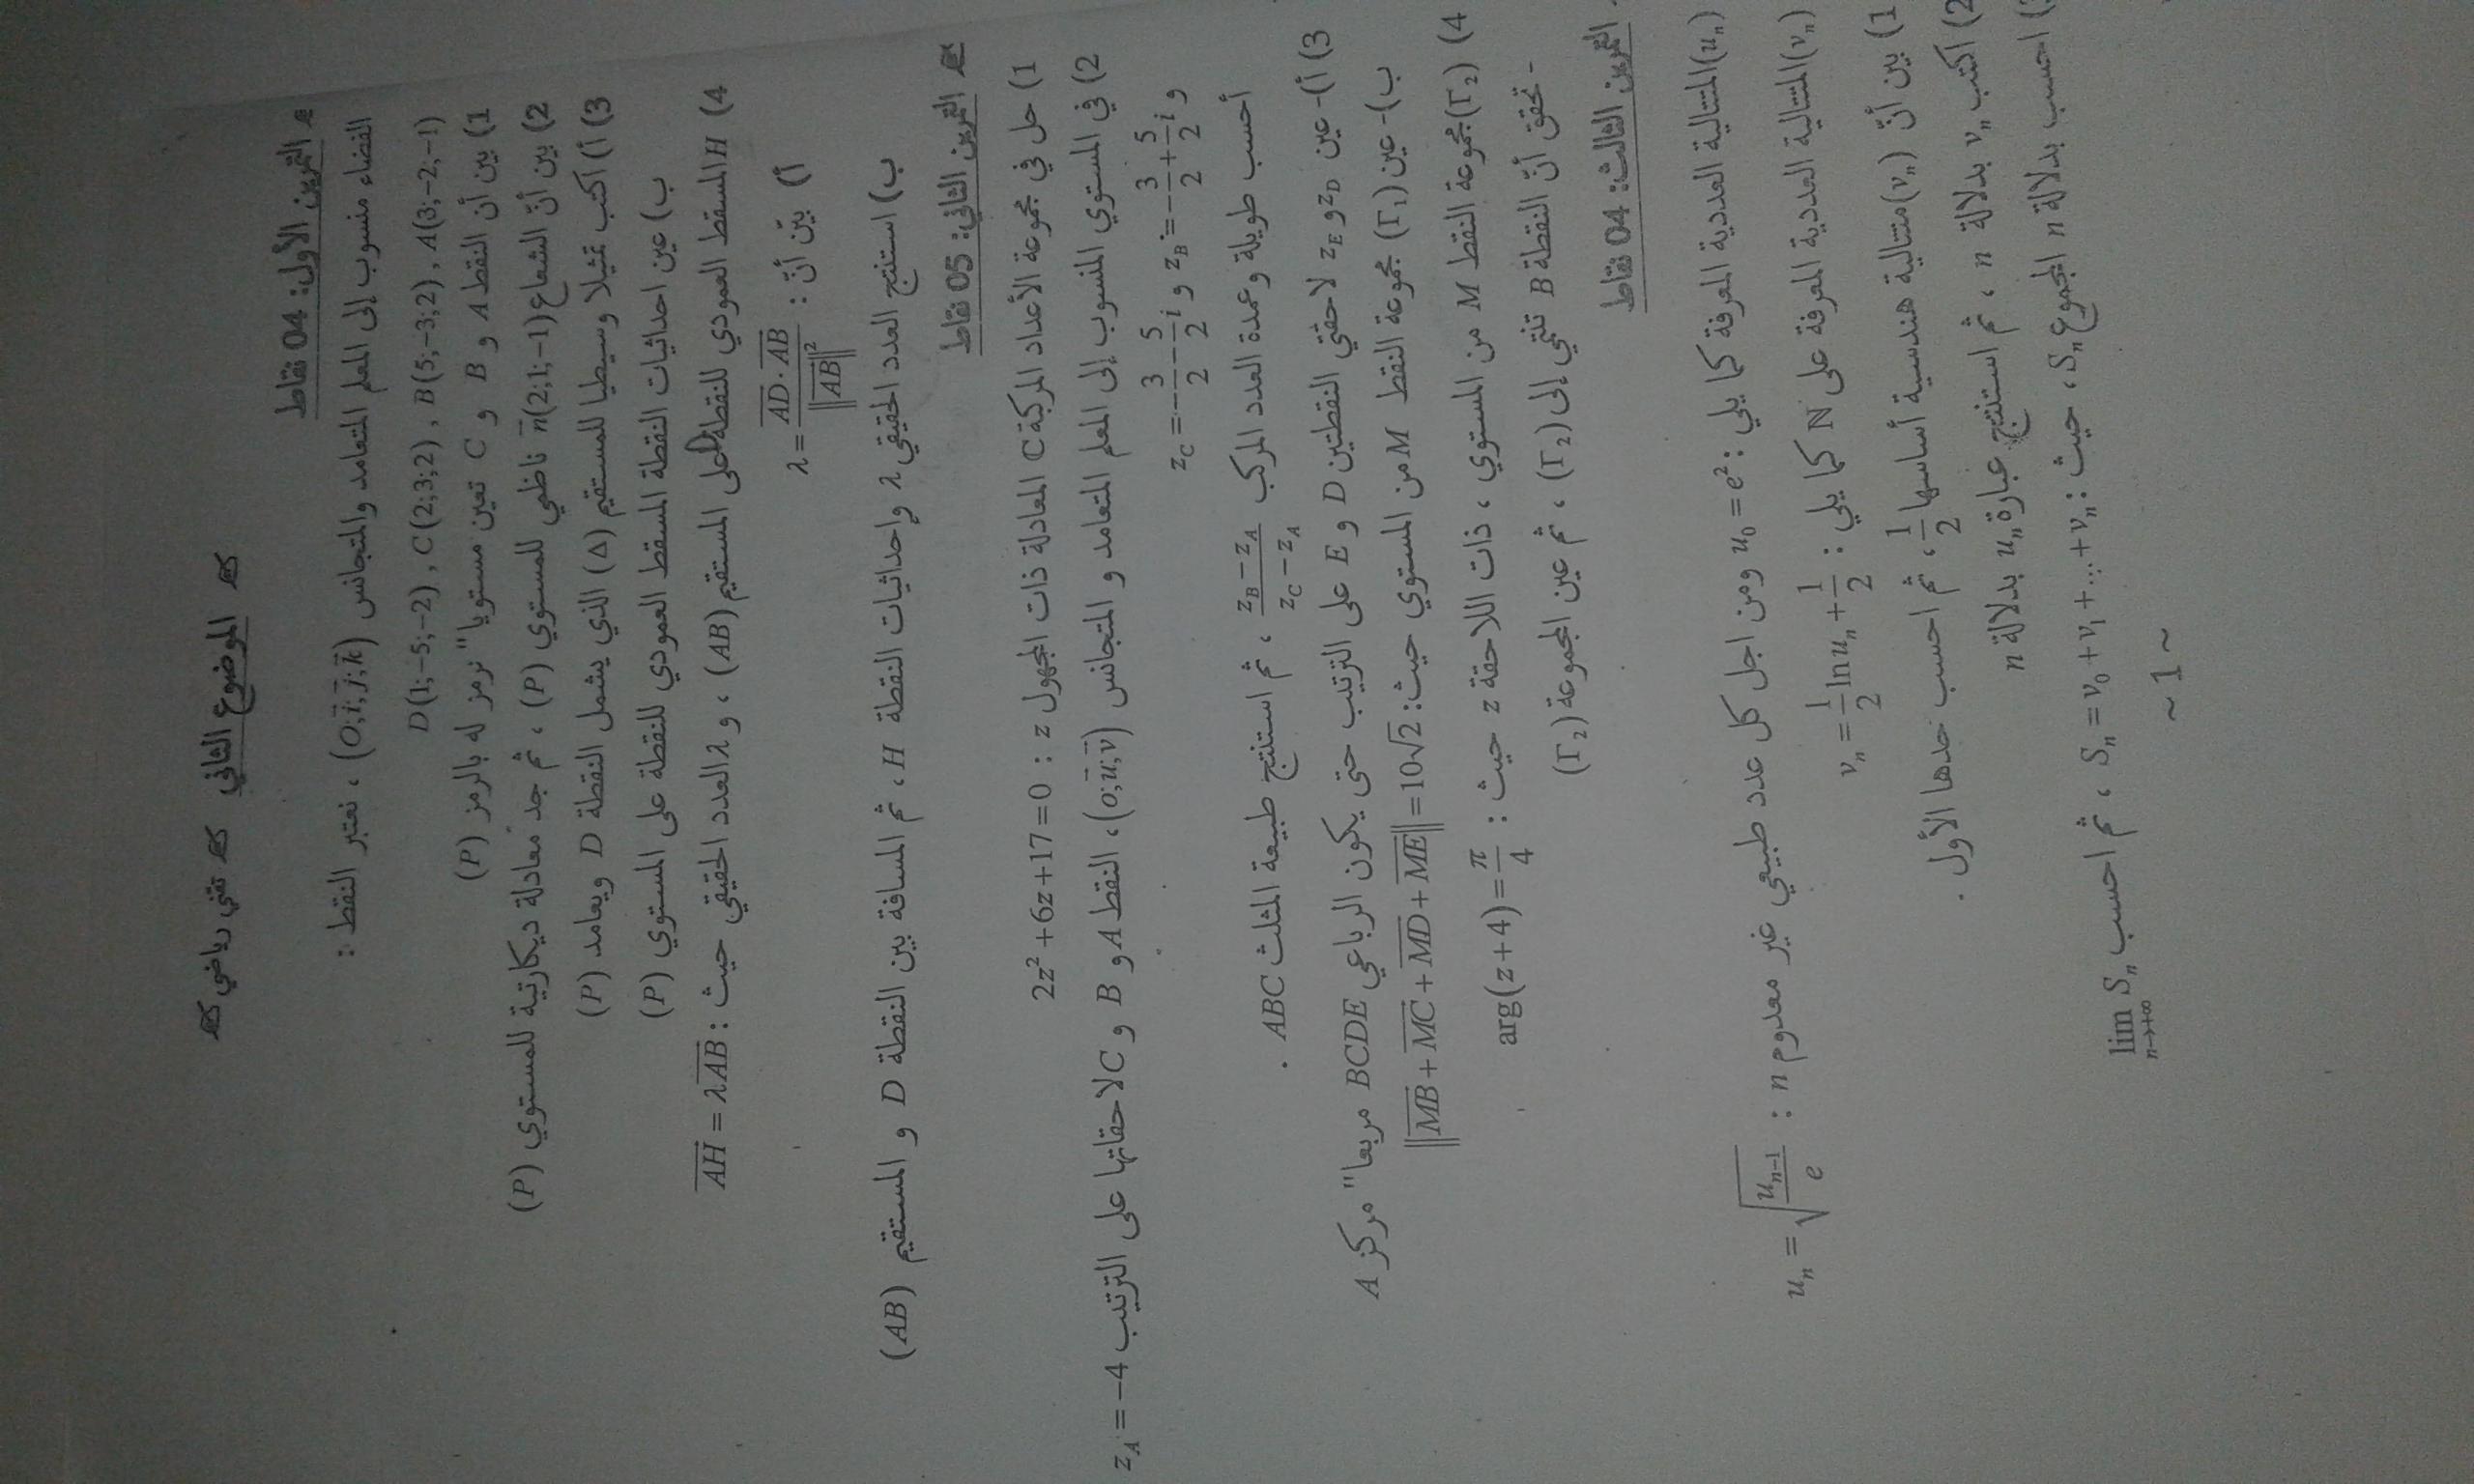 الموضوع الثاني تقني رياضي
التمرين الأول: 04 نقاط
الفضاء منسوب إلى المعلم المتعامد والمتجانس (O;i⃗;j⃗;k⃗) ، نعتبر النقط :
D(1;-5;-2) , C(2;3;2) , B(5;-3;2) , A(3;-2;-1)
1) بين أن النقط A و B و C تعين مستويا" نرمز له بالرمز (P)
2) بين أنّ الشعاع n⃗(2;1;-1) ناظمي للمستوي (P) ، ثم جد معادلة ديكارتية للمستوي (P)
3) أ) اكتب تمثيلا وسيطيا للمستقيم (Δ) الذي يشمل النقطة D ويعامد (P)
ب) عين احداثيات النقطة المسقط العمودي للنقطة على المستوي (P)
4) H المسقط العمودي للنقطة D على المستقيم (AB) ، و λ العدد الحقيقي حيث : AH = λAB
أ) بيّن أنّ : λ = (AD · AB) / ‖AB‖²
ب) استنتج العدد الحقيقي λ وإحداثيات النقطة H ، ثم المسافة بين النقطة D و المستقيم (AB)
التمرين الثاني: 05 نقاط
1) حل في مجموعة الأعداد المركبة C المعادلة ذات المجهول z : 2z² + 6z + 17 = 0
2) في المستوي المنسوب إلى المعلم المتعامد و المتجانس (o;u⃗;v⃗) ، النقط A و B و C لاحقاتها على الترتيب z_A = -4
و z_B = -3/2 + 5/2 i و z_C = -3/2 - 5/2 i
أحسب طويلة وعمدة العدد المركب (z_B - z_A)/(z_C - z_A) ، ثم استنتج طبيعة المثلث ABC .
3) أ)- عين z_D و z_E لاحقتي النقطتين D و E على الترتيب حتى يكون الرباعي BCDE مربعا" مركز A
ب)- عين (Γ₁) مجموعة النقط M من المستوي حيث : ‖MB + MC + MD + ME‖ = 10√2
4) (Γ₂) مجموعة النقط M من المستوي ، ذات اللاحقة z حيث : arg(z+4) = π/4
- تحقق أنّ النقطة B تنتمي إلى (Γ₂) ، ثم عين المجموعة (Γ₂)
التمرين الثالث: 04 نقاط
(u_n) المتتالية العددية المعرفة كما يلي : u₀ = e² ومن اجل كل عدد طبيعي غير معدوم n : u_n = √(u_{n-1}/e)
(v_n) المتتالية العددية المعرفة على ℕ كما يلي : v_n = 1/2 ln u_n + 1/2
1) بين أنّ (v_n) متتالية هندسية أساسها 1/2 ، ثم احسب حدها الأول .
2) اكتب v_n بدلالة n ، ثم استنتج عبارة u_n بدلالة n
احسب بدلالة n المجموع S_n ، حيث : S_n = v₀ + v₁ + ... + v_n ، ثم احسب lim S_n
n→+∞
~ 1 ~